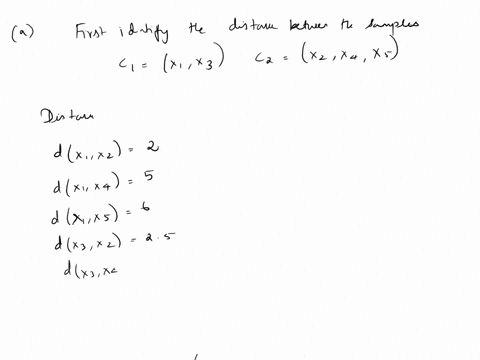 (a) First identify the distance between the samples
C₁ = (x₁, x₃) C₂ = (x₂, x₄, x₅)
Distance
d(x₁, x₂) = 2
d(x₁, x₄) = 5
d(x₁, x₅) = 6
d(x₃, x₂) = 2.5
d(x₃, x₄